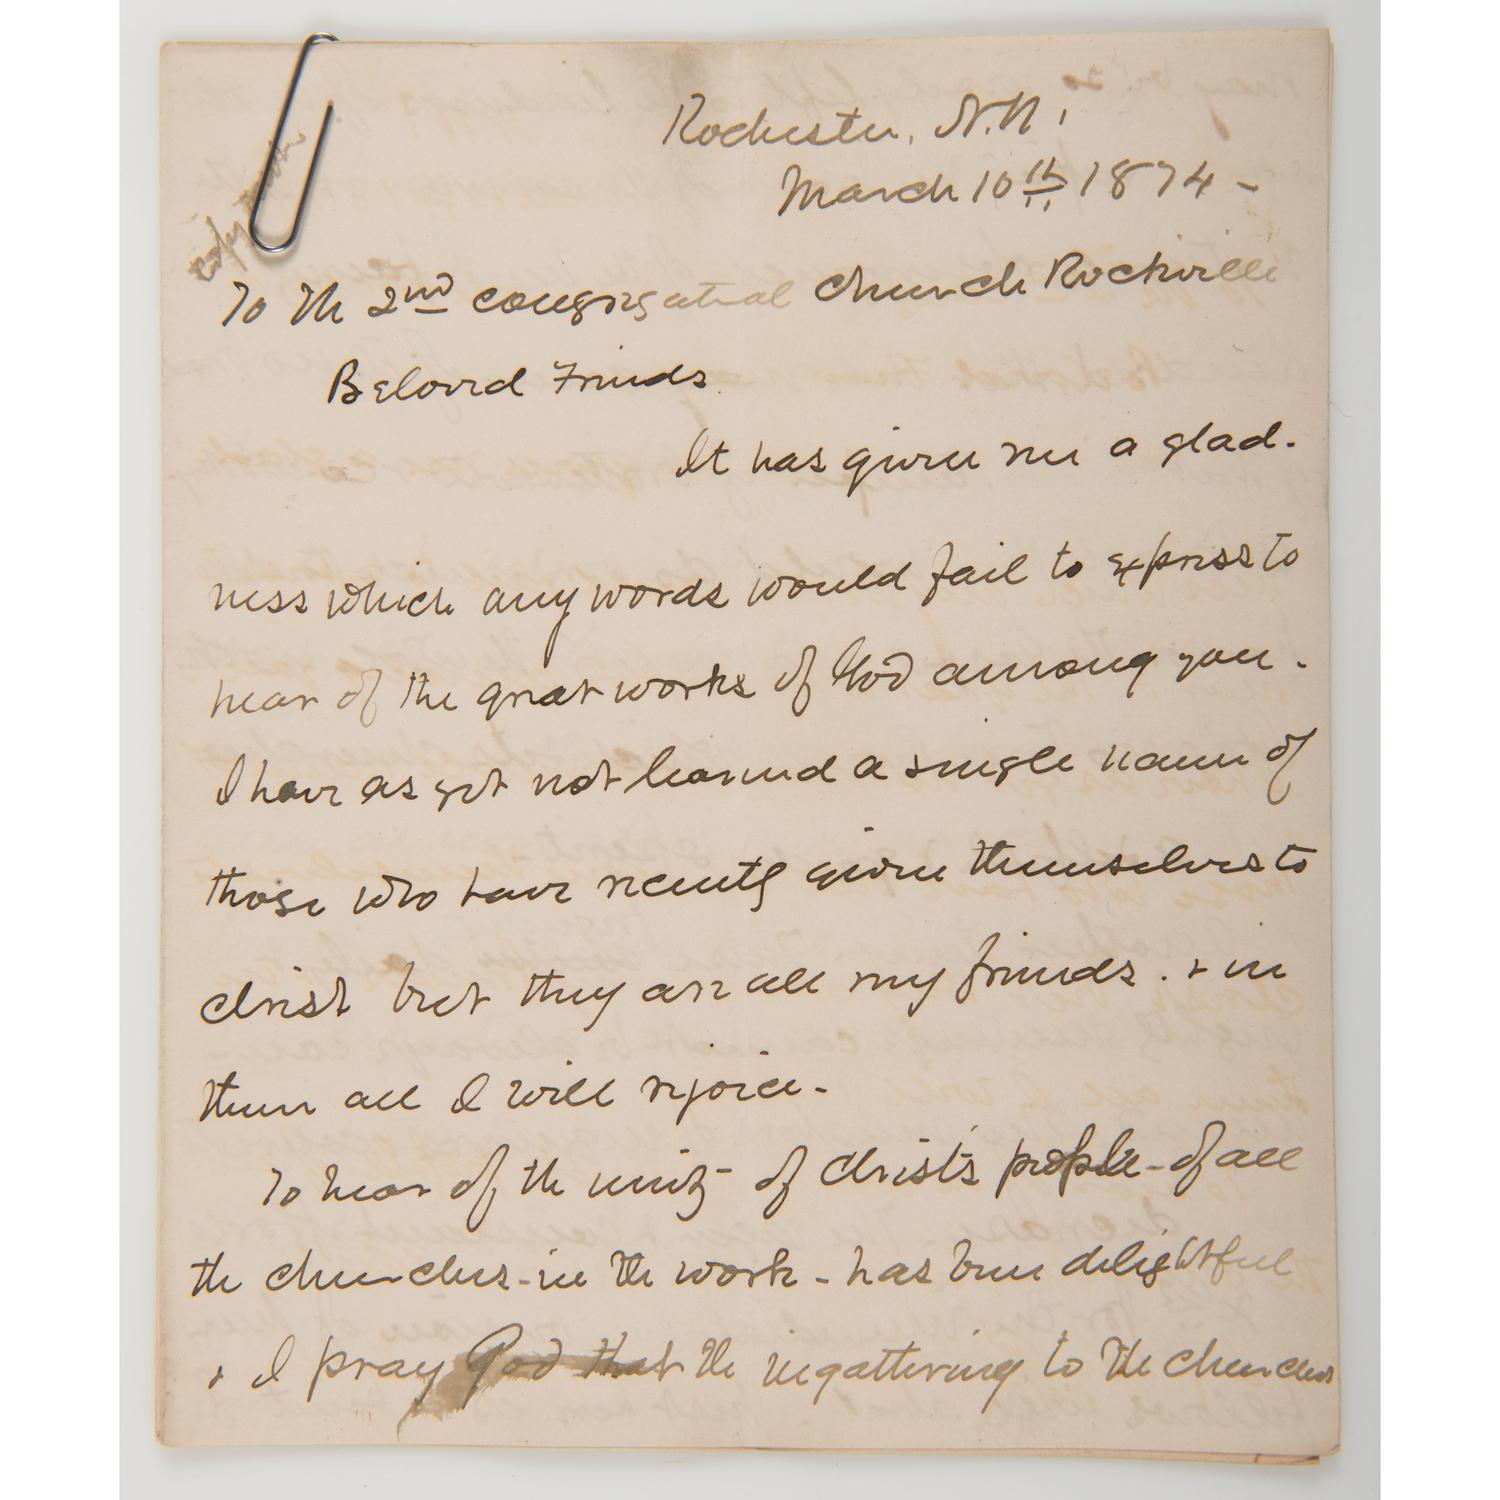 Rochester, N.H.
March 10th 1874 -
copy
To the 2nd congregational church Rockville
Beloved Friends
It has given me a glad-
ness which any words would fail to express to
hear of the great works of God among you.
I have as yet not learned a single name of
those who have recently given themselves to
Christ but they are all my friends. & in
them all I will rejoice.
To hear of the unity of Christ's people - of all
the churches - in the work - has been delightful
& I pray God that the ingathering to the churches